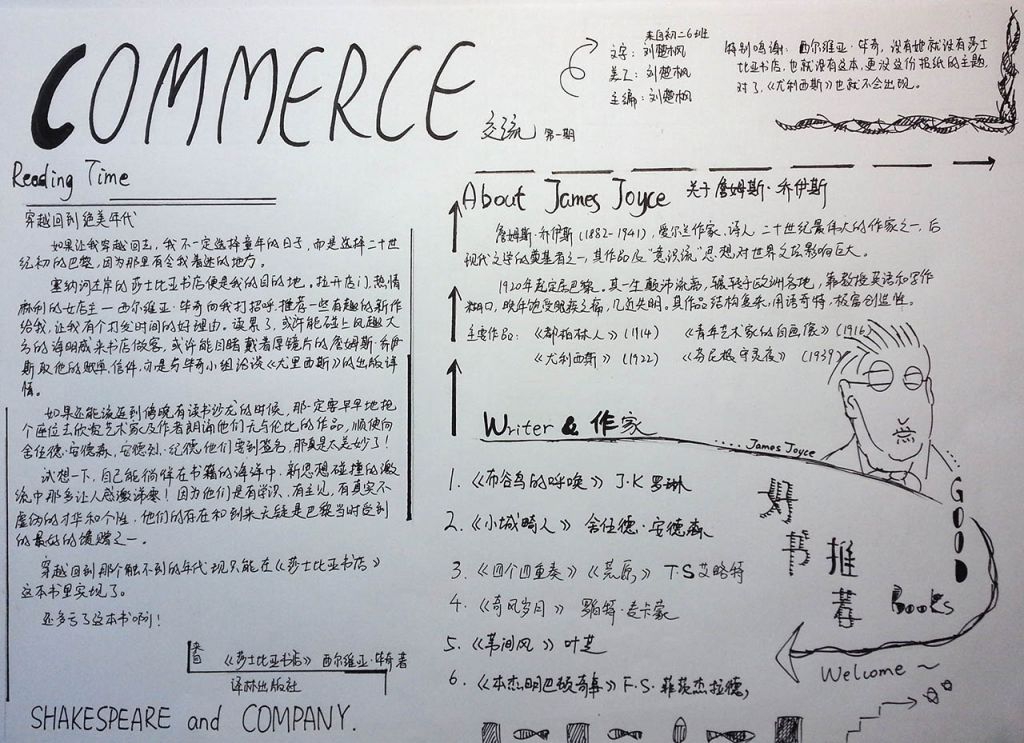 COMMERCE
交流 第一期
来自初二6班
文字：刘楚枫
美工：刘楚枫
主编：刘楚枫
特别鸣谢：西尔维亚·毕奇，没有她就没有莎士
比亚书店，也就没有这本，更没这份报纸的主题，
对了，《尤利西斯》也就不会出现。
Reading Time
穿越回到绝美年代
如果让我穿越回去，我不一定选择童年的日子，而是选择二十世
纪初的巴黎，因为那里有令我着迷的地方。
塞纳河左岸的莎士比亚书店便是我的目的地。拉开店门，热情
麻利的女店主——西尔维亚·毕奇向我打招呼，推荐一些有趣的新作
给我，让我有个打发时间的好理由。读累了，或许能碰上风趣大
方的海明威来书店做客，或许能目睹戴着厚镜片的詹姆斯·乔伊
斯取他的账单、信件，亦是与毕奇小姐洽谈《尤里西斯》的出版详
情。
如果还能逗留到傍晚有读书沙龙的时候，那一定要早早地挑
个座位去欣赏艺术家及作者朗诵他们无与伦比的作品，顺便向
舍伍德·安德森、安德烈·纪德他们要到签名，那真是太美妙了！
试想一下，自己能徜徉在书籍的海洋中，新思想碰撞的激
流中那多让人感激涕零！因为他们是有学识、有主见、有真实不
虚伪的才华和个性，他们的存在和到来无疑是巴黎当时受到
的最好的馈赠之一。
穿越回到那个触不到的年代现只能在《莎士比亚书店》
这本书里实现了。
还多亏了这本书咧！
《莎士比亚书店》 西尔维亚·毕奇 著
译林出版社
SHAKESPEARE and COMPANY.
About James Joyce 关于詹姆斯·乔伊斯
詹姆斯·乔伊斯（1882-1941），爱尔兰作家、诗人，二十世纪最伟大的作家之一，后
现代文学的奠基者之一，其作品及“意识流”思想对世界文坛影响巨大。
1920年起定居巴黎。其一生颠沛流离，辗转于欧洲各地，靠教授英语和写作
糊口，晚年饱受眼疾之痛，几近失明。其作品结构复杂，用语奇特，极富创造性。
主要作品：《都柏林人》（1914） 《青年艺术家的自画像》（1916）
《尤利西斯》（1922） 《芬尼根守灵夜》（1939）
Writer & 作家
James Joyce
1.《布谷鸟的呼唤》 J·K 罗琳
2.《小城畸人》 舍伍德·安德森
3.《四个四重奏》《荒原》 T·S艾略特
4.《奇风岁月》 罗伯特·麦卡蒙
5.《苇间风》 叶芝
6.《本杰明巴顿奇事》 F·S·菲茨杰拉德
好书推荐
GOOD
Books
Welcome～